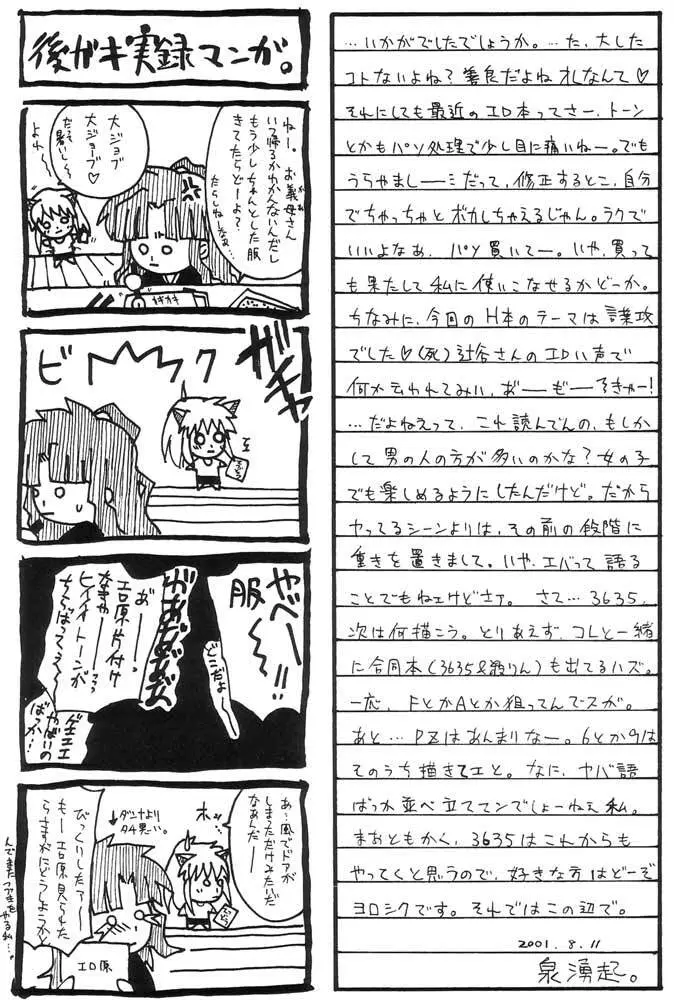 後ガキ実録マンガ。
ねー。お義母さん
いつ帰るかわかんないんだし
もう少しちゃんとした服
きてたらどーよ?
だらしねえなぁ…
大ジョブ
大ジョブ♡
だって暑いしぃ。
よれ〜
ガチャ
ビーークク
やべーー!!
服
どこだよ
があああああ
あ"ーーっ
エロ原片付け
なきゃーーっっ
ヒイイイトーンが
ちらばってえ〜
ゲェエエ
やばいの
ばっか…
あ〜風でドアが
しまっただけみたいだ
なあんだー
ホッ…
↓ダンナより
タチ悪ーい。
びっくりしたァー
もー エロ原見られた
らさすがにどうしようかと
エロ原
んでまたフツーに
やる私…。
…いかがでしたでしょうか。…た、大した
コトないよね?善良だよねオレなんて♡
それにしても最近のエロ本ってさー、トーン
とかもパソ処理で少し目に痛いねー。でも
うらやましーーミだって、修正するとこ、自分
でちゃっちゃとボカしちゃえるじゃん。ラクで
いいよなぁ、パソ買いてー。いや、買って
も果たして私に使いこなせるかどーか。
ちなみに、今回のH本のテーマは言葉攻
でした♡(死)辻谷さんのエロい声で
何か云われてみい、お"ーーも"ーーろきゃー!
…だよねえって、これ読んでんの、もしか
して男の人の方が多いのかな?女の子
でも楽しめるようにしたんだけど。だから
ヤってるシーンよりは、その前の段階に
重きを置きまして。いや、エバって語る
ことでもねェけどさァ。さて…3635、
次は何描こう。とりあえず、コレと一緒
に合同本(3635&殺りん)も出てるハズ。
一応、FとかAとか狙ってんでスが。
あと…PZはあんまりなー。6とか9は
そのうち描きてエと。なに、ヤバ語
ばっか並べ立ててンでしょーねぇ私。
まあともかく、3635はこれからも
やってくと思うので、好きな方はどーぞ
ヨロシクです。それではこの辺で。
2001.8.11
泉湧起。